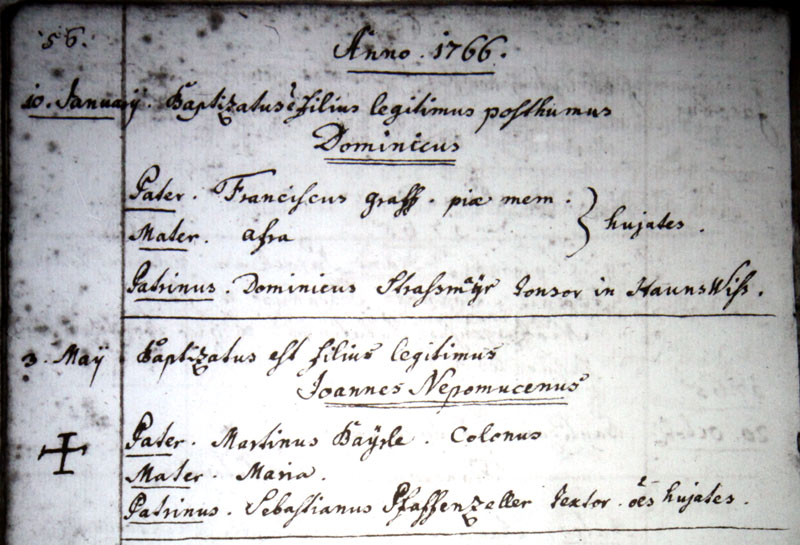 56.
Anno. 1766.
10. Januarÿ. Baptizatus ẽ filius legitimus posthumus
Dominicus
Pater. Franciscus graff. piæ mem.
Mater. Afra } hujates.
Patrinus. Dominicus Strassmäÿr Tonsor in HaunsWiss.
3. Maÿ Baptizatus est filius legitimus
Joannes Nepomucenus
Pater. Martinus Baÿrle. Colonus
Mater. Maria.
Patrinus. Sebastianus Pfaffenzeller textor. oẽs hujates.